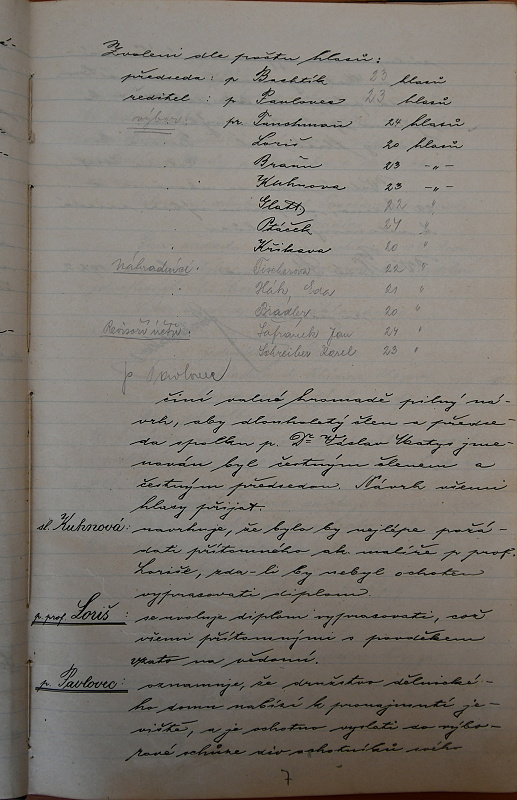 Zvoleni dle počtu hlasů:
předseda: p Bachtík 23 hlasů
ředitel: p Pavlovec 23 hlasů
výbor pp. 24 hlasů
Loriš 20 hlasů
Braun 23 -„-
Kuhnova 23 -„-
Glatt 22 "
Ptáček 24 "
Křikava 20 "
Náhradníci: Fischerová 22 "
Hák, Eda 21 "
Brádley 20 "
Revisoři účtů: Šafránek Jan 24 "
Schreiber Karel 23 "
p. Pavlovec
činí valné hromadě pilný ná-
vrh, aby dlouholetý člen a předse-
da spolku p. Dr Václav jme-
nován byl čestným členem a
čestným předsedou. Návrh všemi
hlasy přijat.
sl. Kuhnová: navrhuje, že bylo by nejlépe požá-
dati přítomného ak. malíře p prof.
Loriše, zda-li by nebyl ochoten
vypracovati diplom.
p. prof. Loriš: se uvoluje diplom vypracovati, což
všemi přítomnými s povděkem
vzato na vědomí.
p. Pavlovec: oznamuje, že družstvo dělnické-
ho domu nabízí k pronajmutí je-
viště, a je ochotno vyslati do výbo-
rové schůze div. ochotníků svého
7